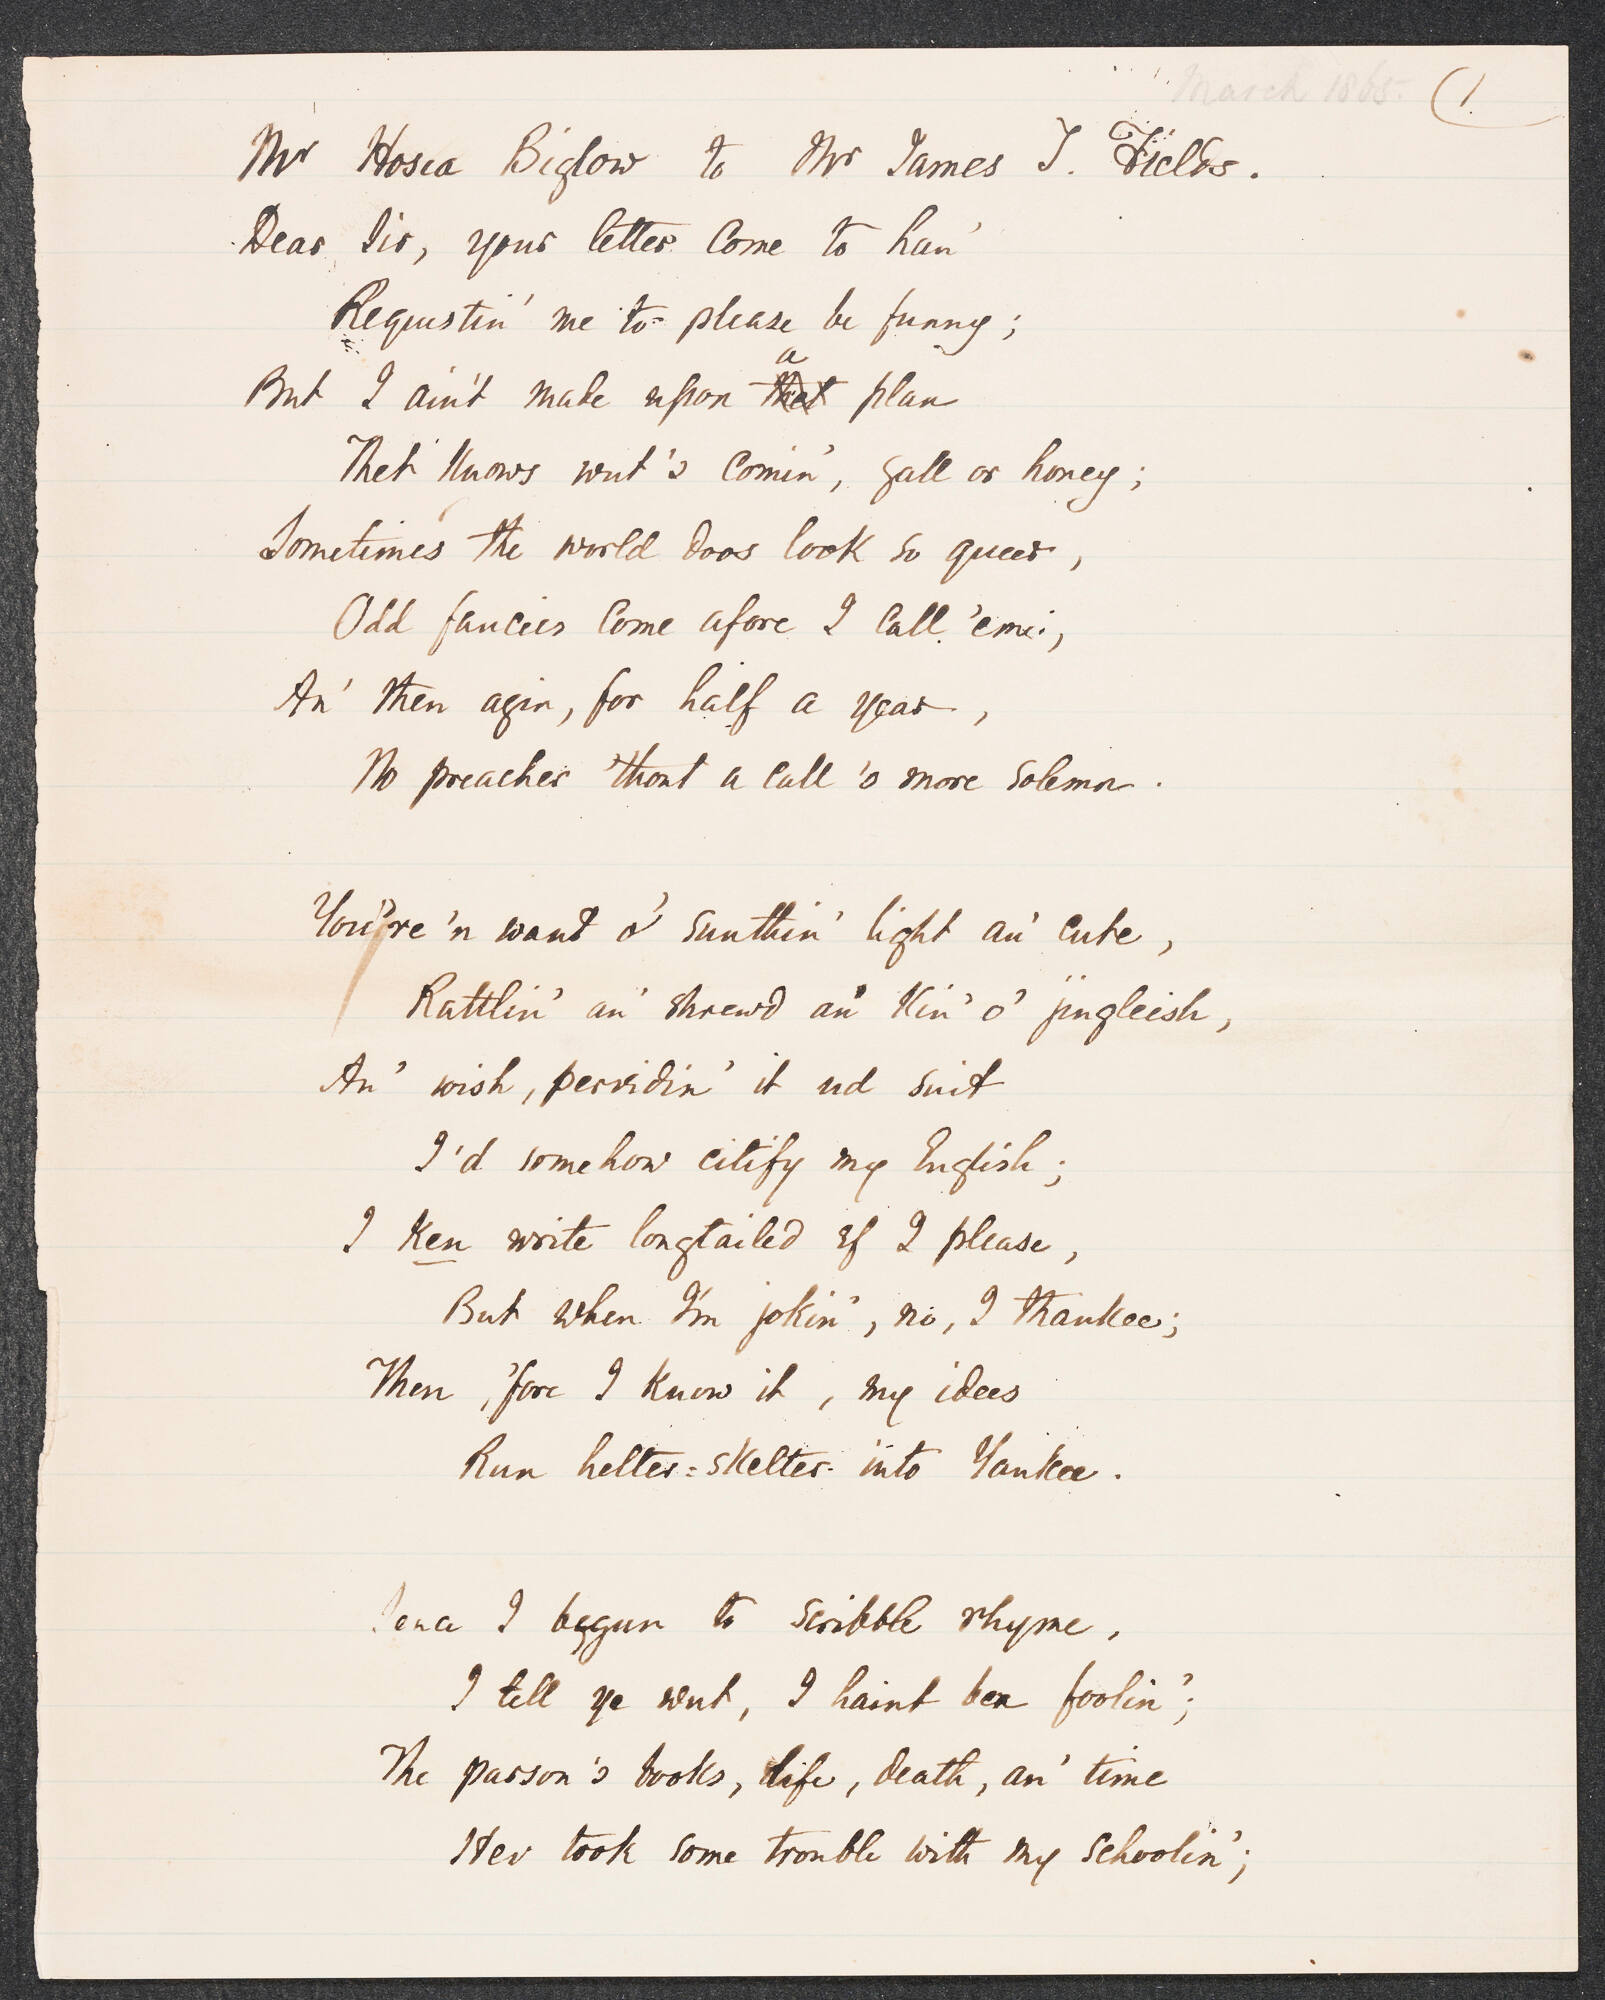 March 1865. (1.
Mr Hosea Biglow to Mr James T. Fields.
Dear Sir, your letter come to han'
Requestin' me to please be funny;
a
But I ain't made upon thet plan
Thet knows wut's comin', gall or honey;
Sometimes the world doos look so queer,
Odd fancies come afore I call 'em;,
An' then agin, for half a year,
No preacher 'thout a call 's more solemn.
You're 'n want o' sunthin' light an' cute,
Rattlin' an' shrewd an' kin' o' jingleish,
An' wish, pervidin' it ud suit
I'd somehow citify my English;
I ken write longtailed ef I please,
But when I'm jokin', no, I thankee;
Then, 'fore I know it, my idees
Run helter-skelter into Yankee.
Sence I begun to scribble rhyme,
I tell ye wut, I haint ben foolin';
The parson's books, life, death, an' time
Hev took some trouble with my schoolin';